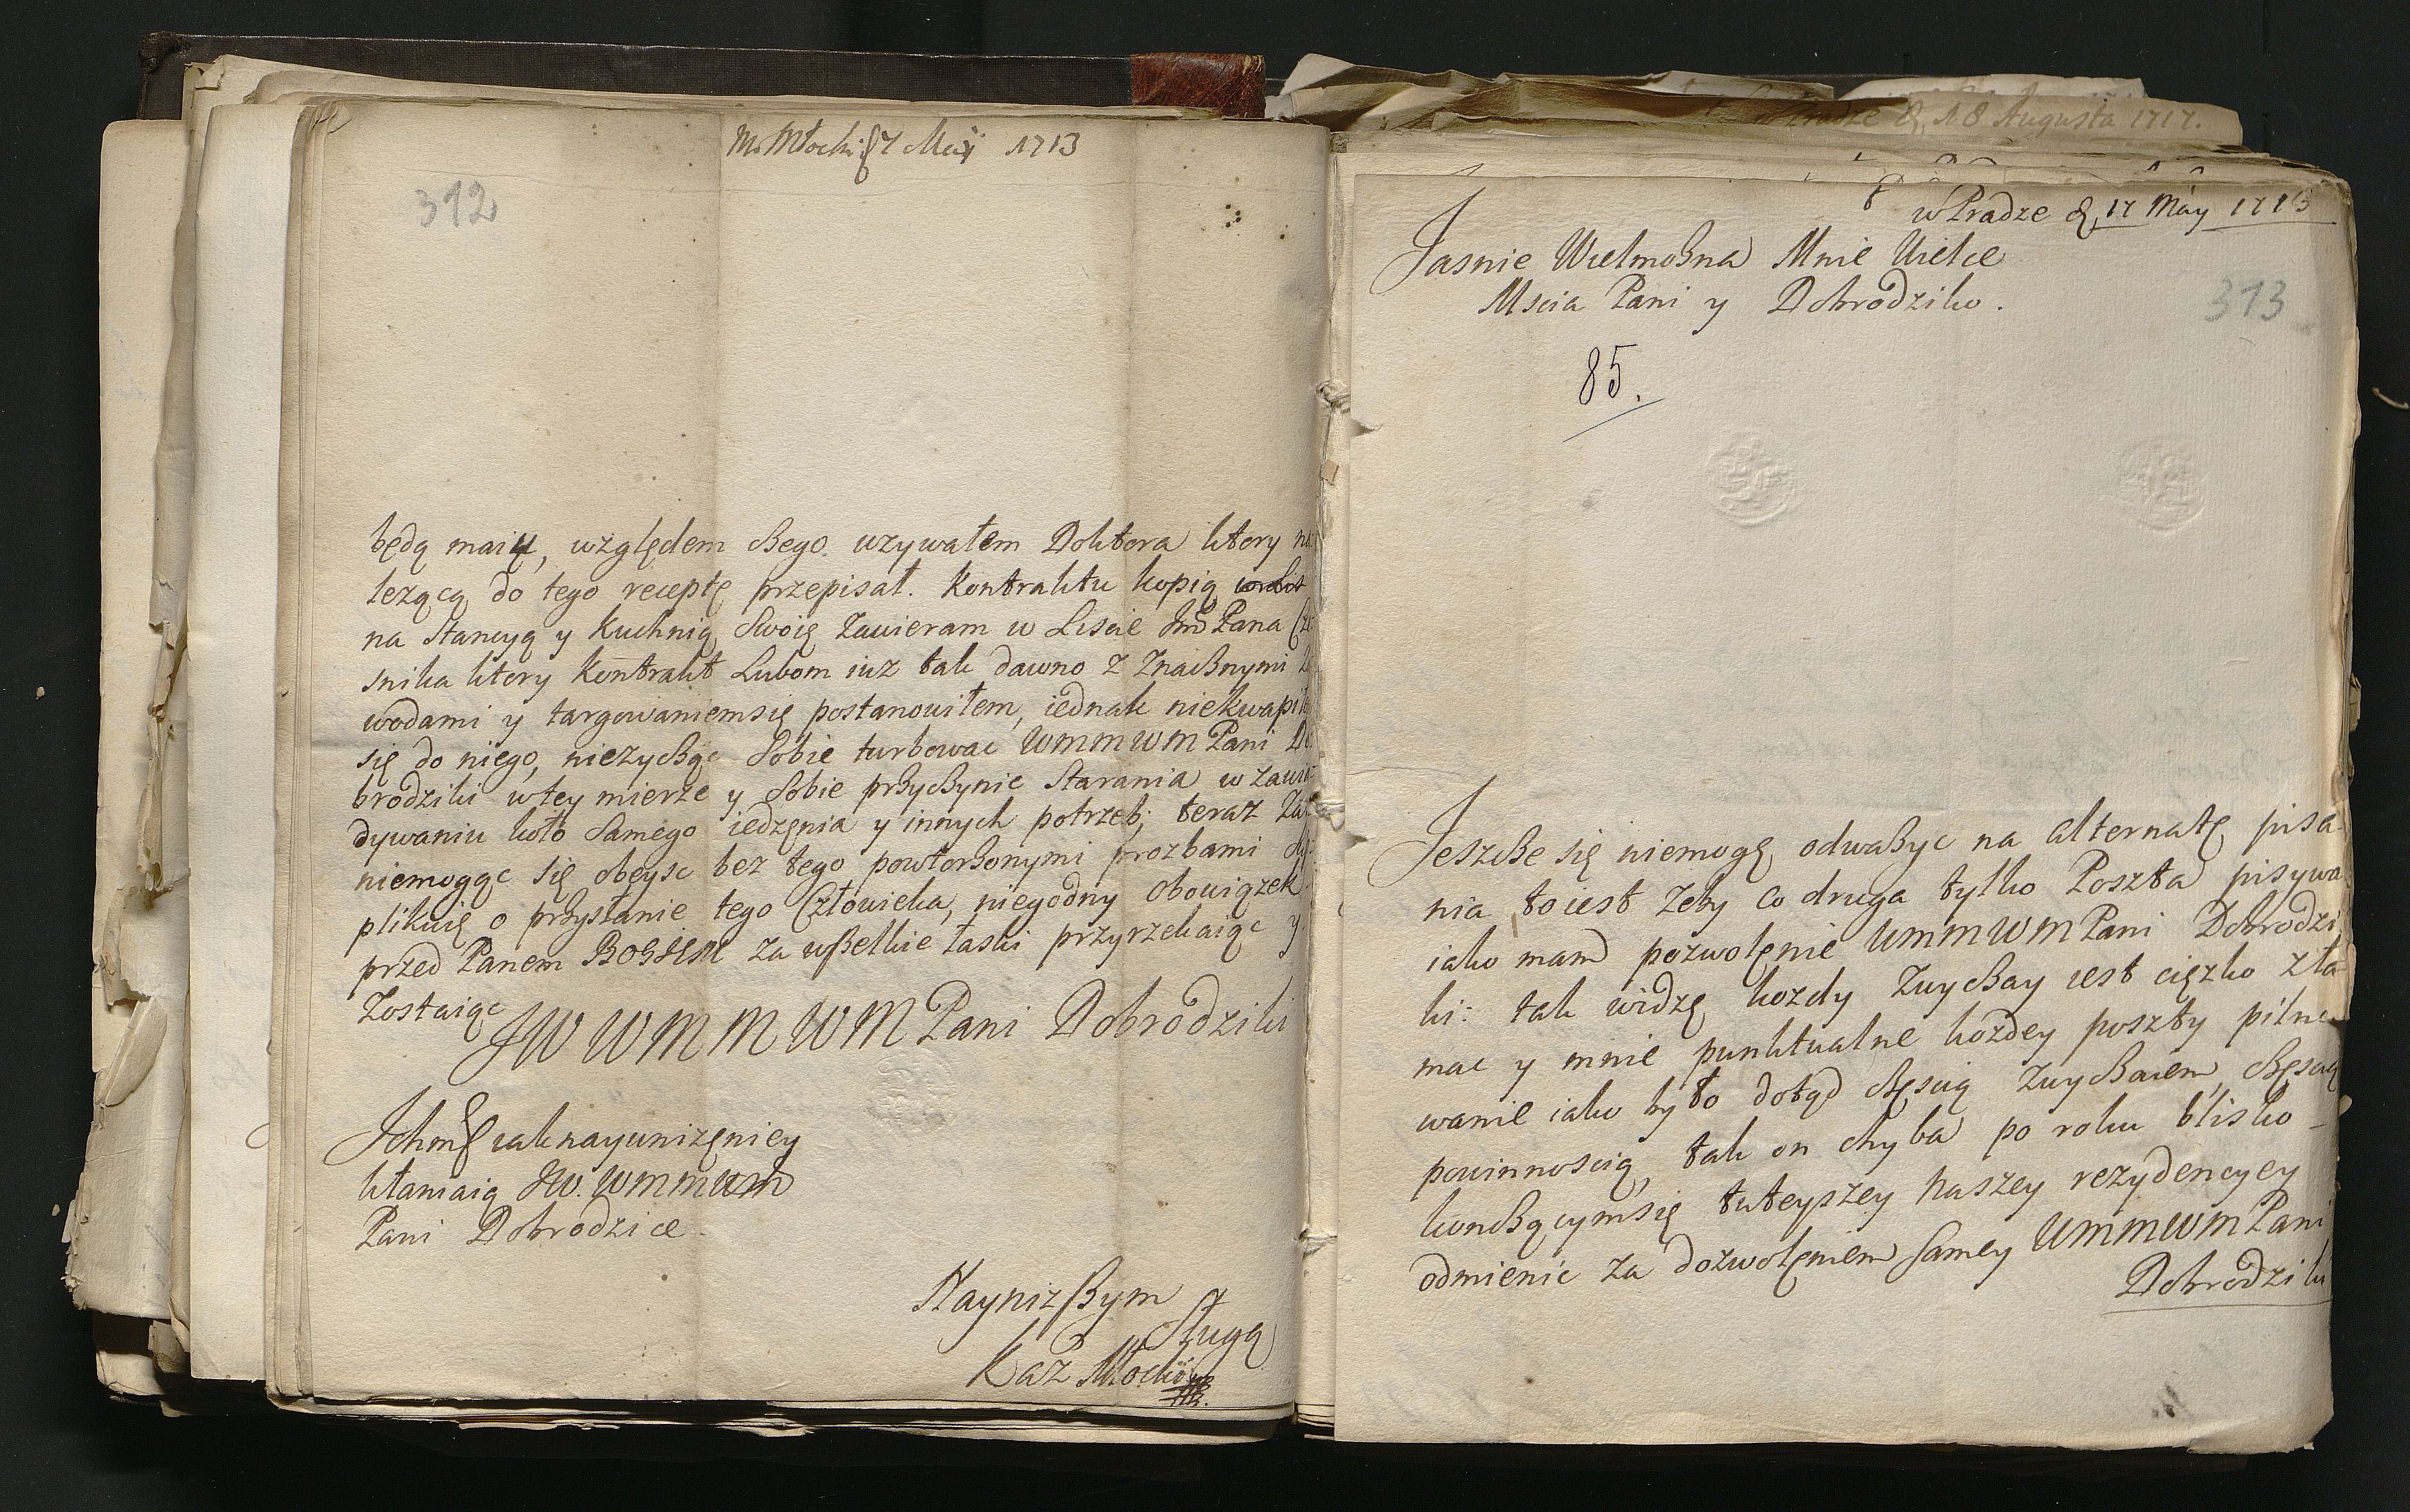 Mr Młocki 7 Maii 1713
312
będą maią, względem czego uzywałem Doktora ktory na
lezącą do tego receptę przepisał. Kontraktu kopią
na Stancyą y Kuchnią Swoię Zawieram w Liscie Pana Cze
snika ktory Kontrakt Lubom iuz tak dawno z Znaisnymi
wodami y targowaniemsię postanowiłem, iednak niekwapi
się do niego, niezycząc Sobie turbowac WMMWM Pani Do
brodziki wtey mierze y Sobie przyczynic Starania w zawia
dywaniu koło Samego iedzęnia y innych potrzeb; teraz
niemogąc się obeysc bez tego powtorzonymi prozbami
plikuię o przysłanie tego Człowieka, niegodny obowiązek
przed Panem BOGIEM za wszelkie łaski przyrzekaiąc y
Zostaiąc
JW WMMWM Pani Dobrodziki
Ichmć iak nayunizęniey
kłaniaią JW. WMMWM
Pani Dobrodzice
Nayniższym
Sługą
Kaz Młocki
18 Augusta 1717.
w Pradze d, 17 May 1713
Jasnie Wielmożna Mnie Wielce
Mscia Pani y Dobrodziko.
313
85.
Jeszcze się niemogę odważyc na alternatę pisa-
nia toiest zeby co druga tylko Poszta pisywa
iako mam pozwolęnie WMMWM Pani Dobrodzi
ki: tak widzę kozdy Zwyczay iest cięzko zła
mac y mnie punktualne kozdey poszty pilno
wanie iako było dotąd częscią Zwyczaiem, częscią
powinnoscią, tak on chyba po roku blisko
konczącymsię tuteyszey Naszey rezydencyey
odmienic za dozwolęniem samey WMMWM Pani
Dobrodziki